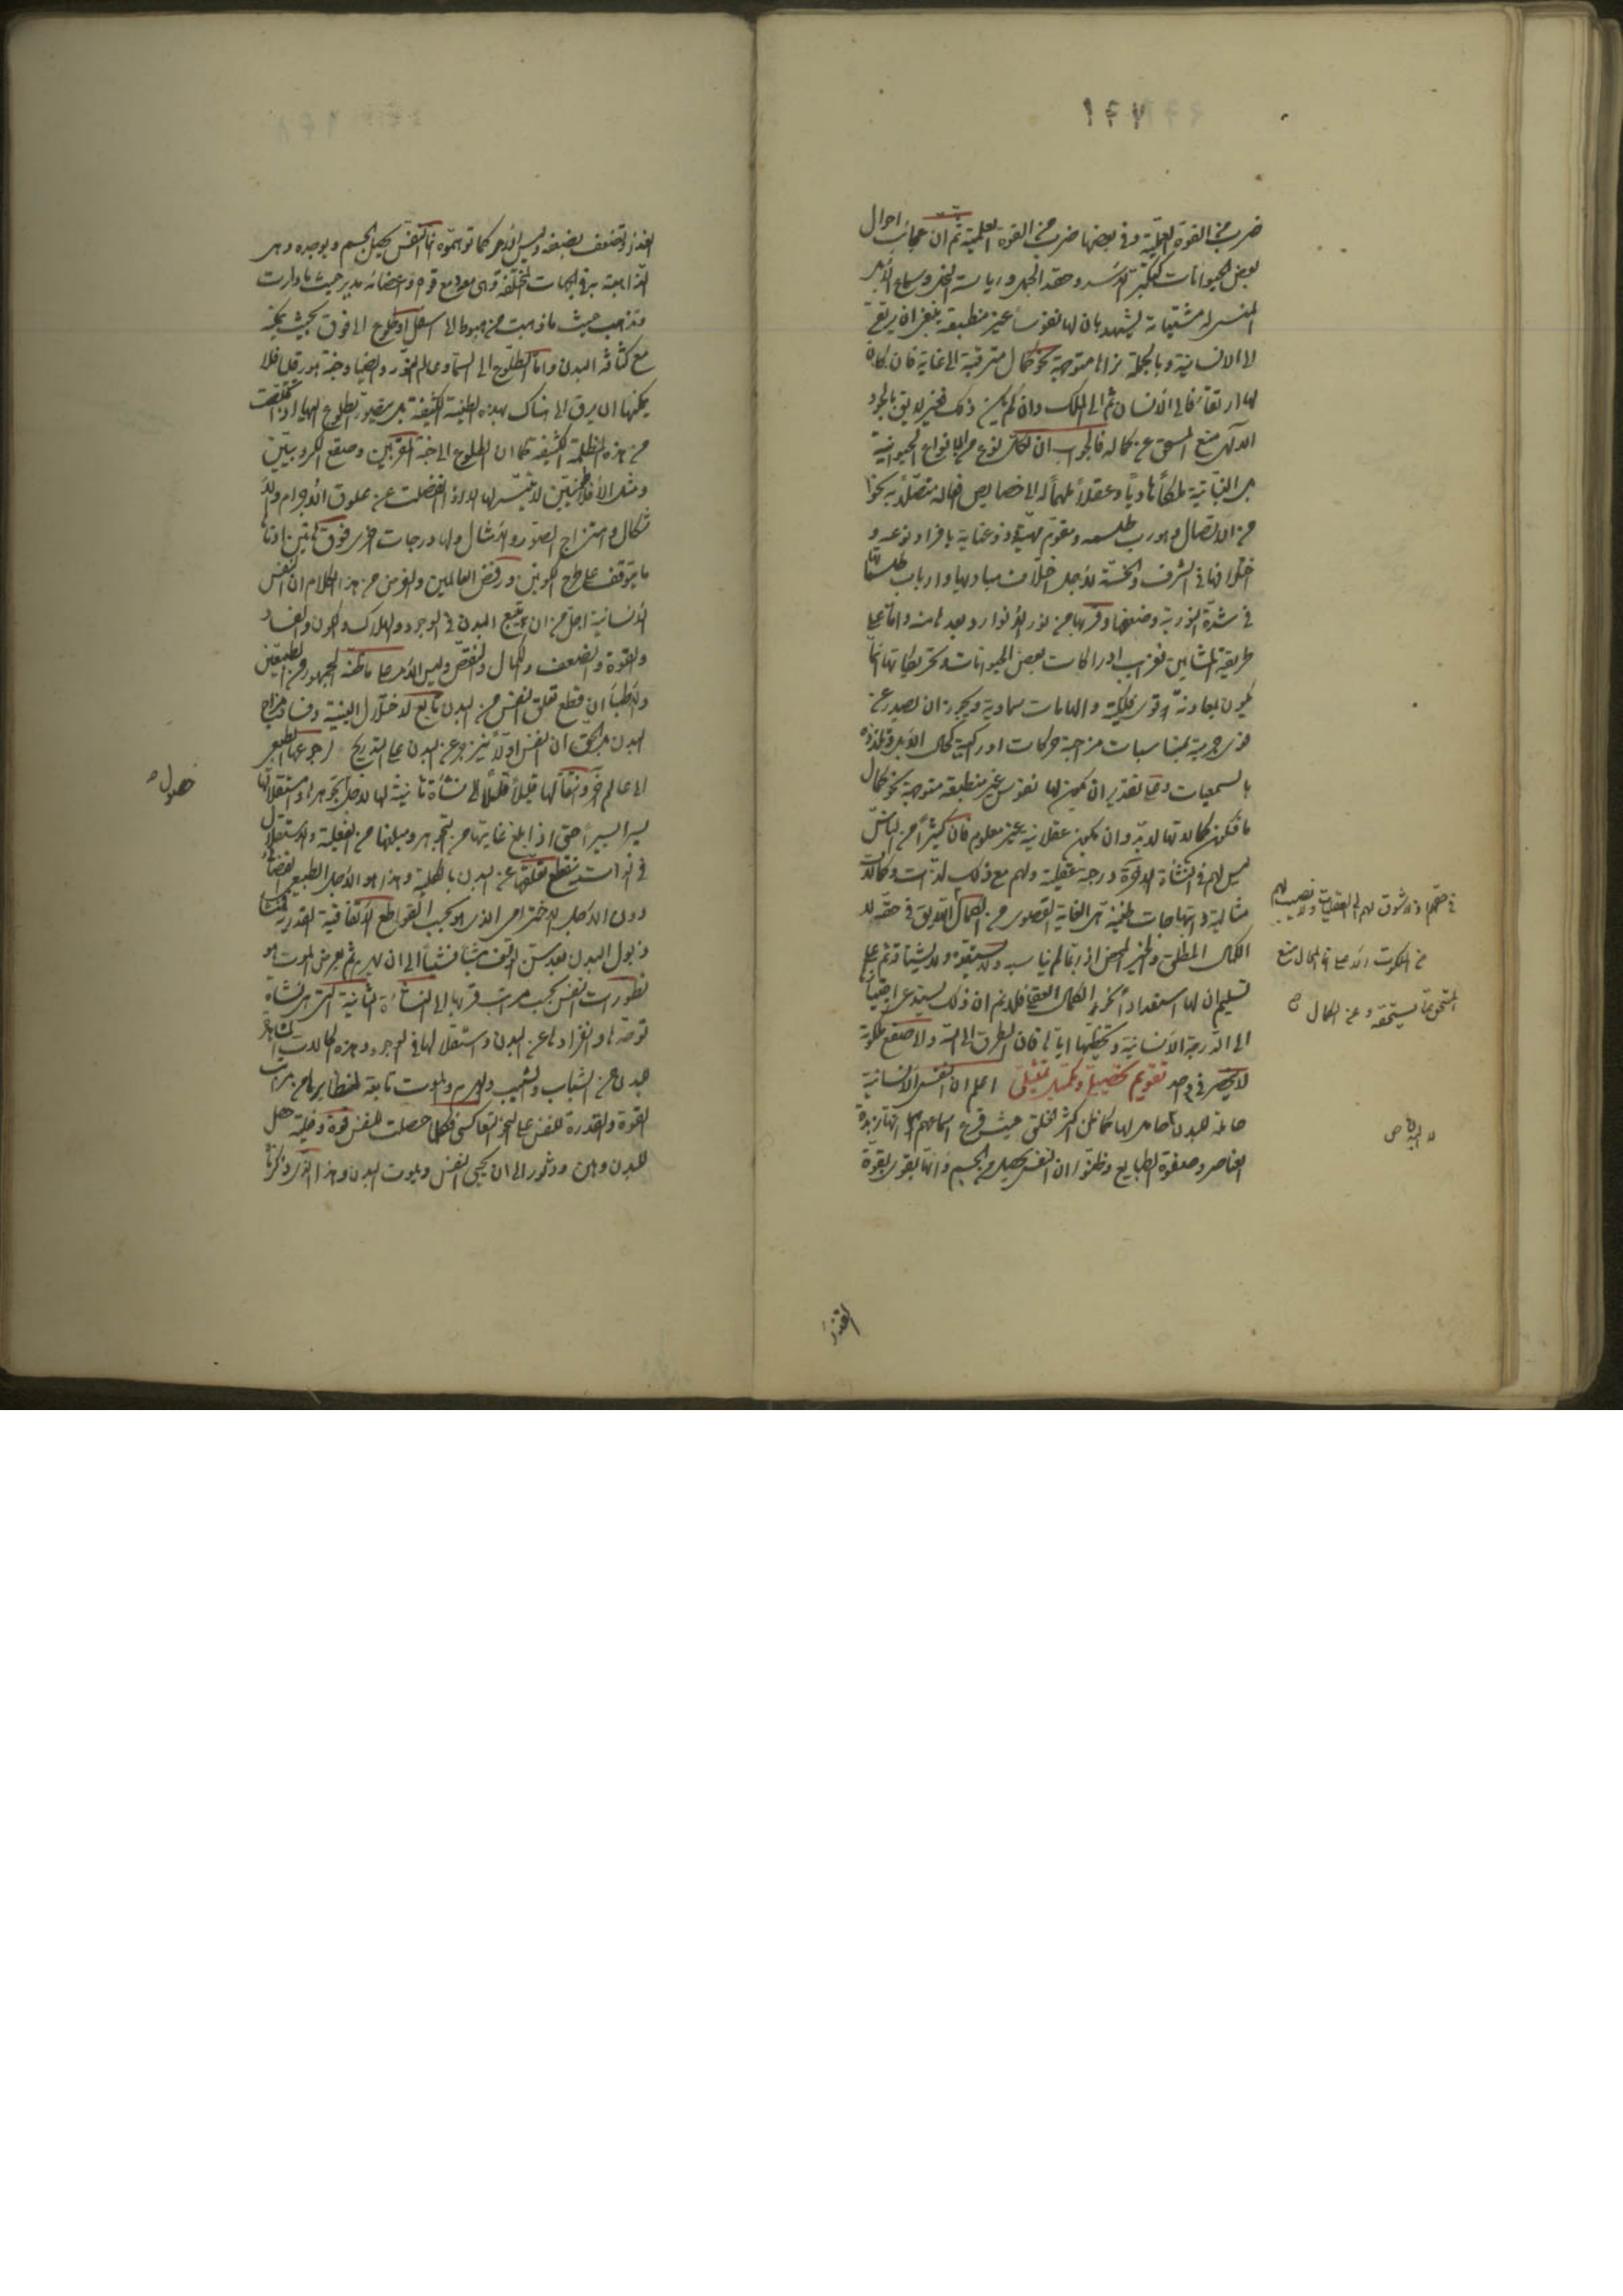 ١٤٧
ضرب من القوة العملية وفي بعضها ضرب من القوة العلمية ثم ان عجائب احوال
بعض الحيوانات كتكبر الاسد وحقد الجمل ورياسة النحل وسماع الابل
المنسى له مشتهياته يشهد بان لها نفوسا غير منطبعة ينبغي ان يرتقي
الى الانسانية وبالجملة نراها متوجهة نحو كمال مترقبة الى غاية فان كان
لها ارتقاء فالى الانسان ثم الى الملك وان لم يكن ذلك فغير لايق بالجود
الالهي منع المستحق عن كماله فالجواب ان لكل نوع من الانواع الحيوانية
بل النباتية ملكا هاديا وعقلا ملهما له الى خصايص افعاله متصلا به نحوا
من الاتصال وهو رب طلسمه ومقوم مهيته وذو عناية بافراد نوعه و
اختلافها في الشرف والخسة لاجل اختلاف مباديها وارباب طلسماتها
في شدة النورية وضعفها وقربها من نور الانوار وبعدها منه واما على
طريقة المشائين فغرايب ادراكات بعض الحيوانات وتحريكاتها انما
يكون بمعاونة قوى فلكية والهامات سماوية ويجوز ان يصدر عن
قوى جرمية بمناسبات مزاجية حركات ادراكية كحال الابل وتلذذه
بالسمعيات وعلى تقدير ان يكون لها نفوس غير منطبعة متوجهة نحو كمال
ما فكون كمالاتها لابد وان يكون عقلانية غير معلوم فان كثيرا من الناس
ليس لهم في النشأة الاخرة درجة عقلية ولهم مع ذلك لذات وكمالات
مثالية وابتهاجات ظنية هي الغاية القصوى من الكمال اللايق في حقه لا
الكمال المطلق والخير المحض اذ ربما لم يناسبه ولا يستحقه ولا يشتاقه ثم على
تسليم ان لها استعدادا نحو الكمال العقلي فلا نم ان ذلك يستدعي ارتقائها
الى الدرجة الانسانية وتخطيها اياها فان الطرق الى الله ولا صقع ملكوته
لا ينحصر في واحد تقويم تحصيلي وتمهيد تمثيلي اعلم ان النفس الانسانية
حاملة للبدن لا حامل لها كما ظن اكثر الخلق حيث قرع اسماعهم انها زبدة
العناصر وصفوة الطبايع وظنوا ان النفس يحصل من الجسم وانها تقوى بقوة
في حقهم اذ لا شوق لهم الى العقليات ولا نصيب لهم
من الملكوت الاعلى فالمحال منع
المستحق عما يستحقه وعن الكمال
لا البدن ص
الغذاء
الغذاء وتضعف بضعفه وليس الامر كما توهموه انما النفس يحصل الجسم ويوجده وهي
الذاهبة به في الجهات المختلفة وهي معه ومع قواه واعضائه مدبر حيث ما دارت
وتذهب حيث ما ذهبت من هبوط الى اسفل او طلوع الى فوق بحيث يمكنه
مع كثافة البدن واما الطلوع الى السماء وعالم النور والضياء وجنة هورقليا فلا
يمكنها ان يرقى الى هناك بهذه الطينة الكثيفة بل يتصور بطلوع اليها اذا تخلصت
من هذه المظلمة الكثيفة كما ان الطلوع الى جنة المقربين وصقع الكروبيين
ومثل الافلاطونيين لا يتيسر لها الا اذا انفصلت عن علوق الاجرام والا
شكال وامتزاج الصور والامثال ولها درجات اخرى فوق هاتين ادناها
ما يتوقف على طرح الكونين ورفض العالمين والغرض من هذا الكلام ان النفس
الانسانية اجل من ان تتبع البدن في الوجود والهلاك والكون والفساد
والقوة والضعف والكمال والنقص وليس الامر على ما ظنه الجمهور من الطبيعيين
والاطباء ان قطع تعلق النفس من البدن تابع لاختلال البنية وفساد مزاج
البدن بل الحق ان النفس اولا ينزجر عن البدن على التدريج لرجوعها الطبيعي
الى عالم اخر وانتقالها قليلا قليلا الى نشأة ثانية لها لاجل تجوهرها واستقلالها
يسيرا يسيرا حتى اذا بلغ غايتها من التجوهر ومبلغها من الفعلية والاستقلال
في الذات ينقطع تعلقها عن البدن بالكلية وهذا هو الاجل الطبيعي
دون الاجل الاخترامي الذي هو بحسب القواطع الاتفاقية القدرية فمنشأ
ذبول البدن بعد سن الوقوف شيئا فشيئا الى ان يهرم ثم يعرض الموت هو
تطورات النفس بحسب مراتب قربها الى النشأة الثانية التي هي نشأة
توحدها وانفرادها عن البدن واستقلالها في الوجود وهذه الحالات المشاهدة
للبدن من الشباب والشيب والهرم والموت تابعة لما يطابرها من مراتب
القوة والقدرة للنفس على نحو التعاكس فكلما حصلت للنفس قوة وفعلية حصل
للبدن وهن ودثور الى ان يحيى النفس ويموت البدن وهذا الذي ذكرناه
حصول